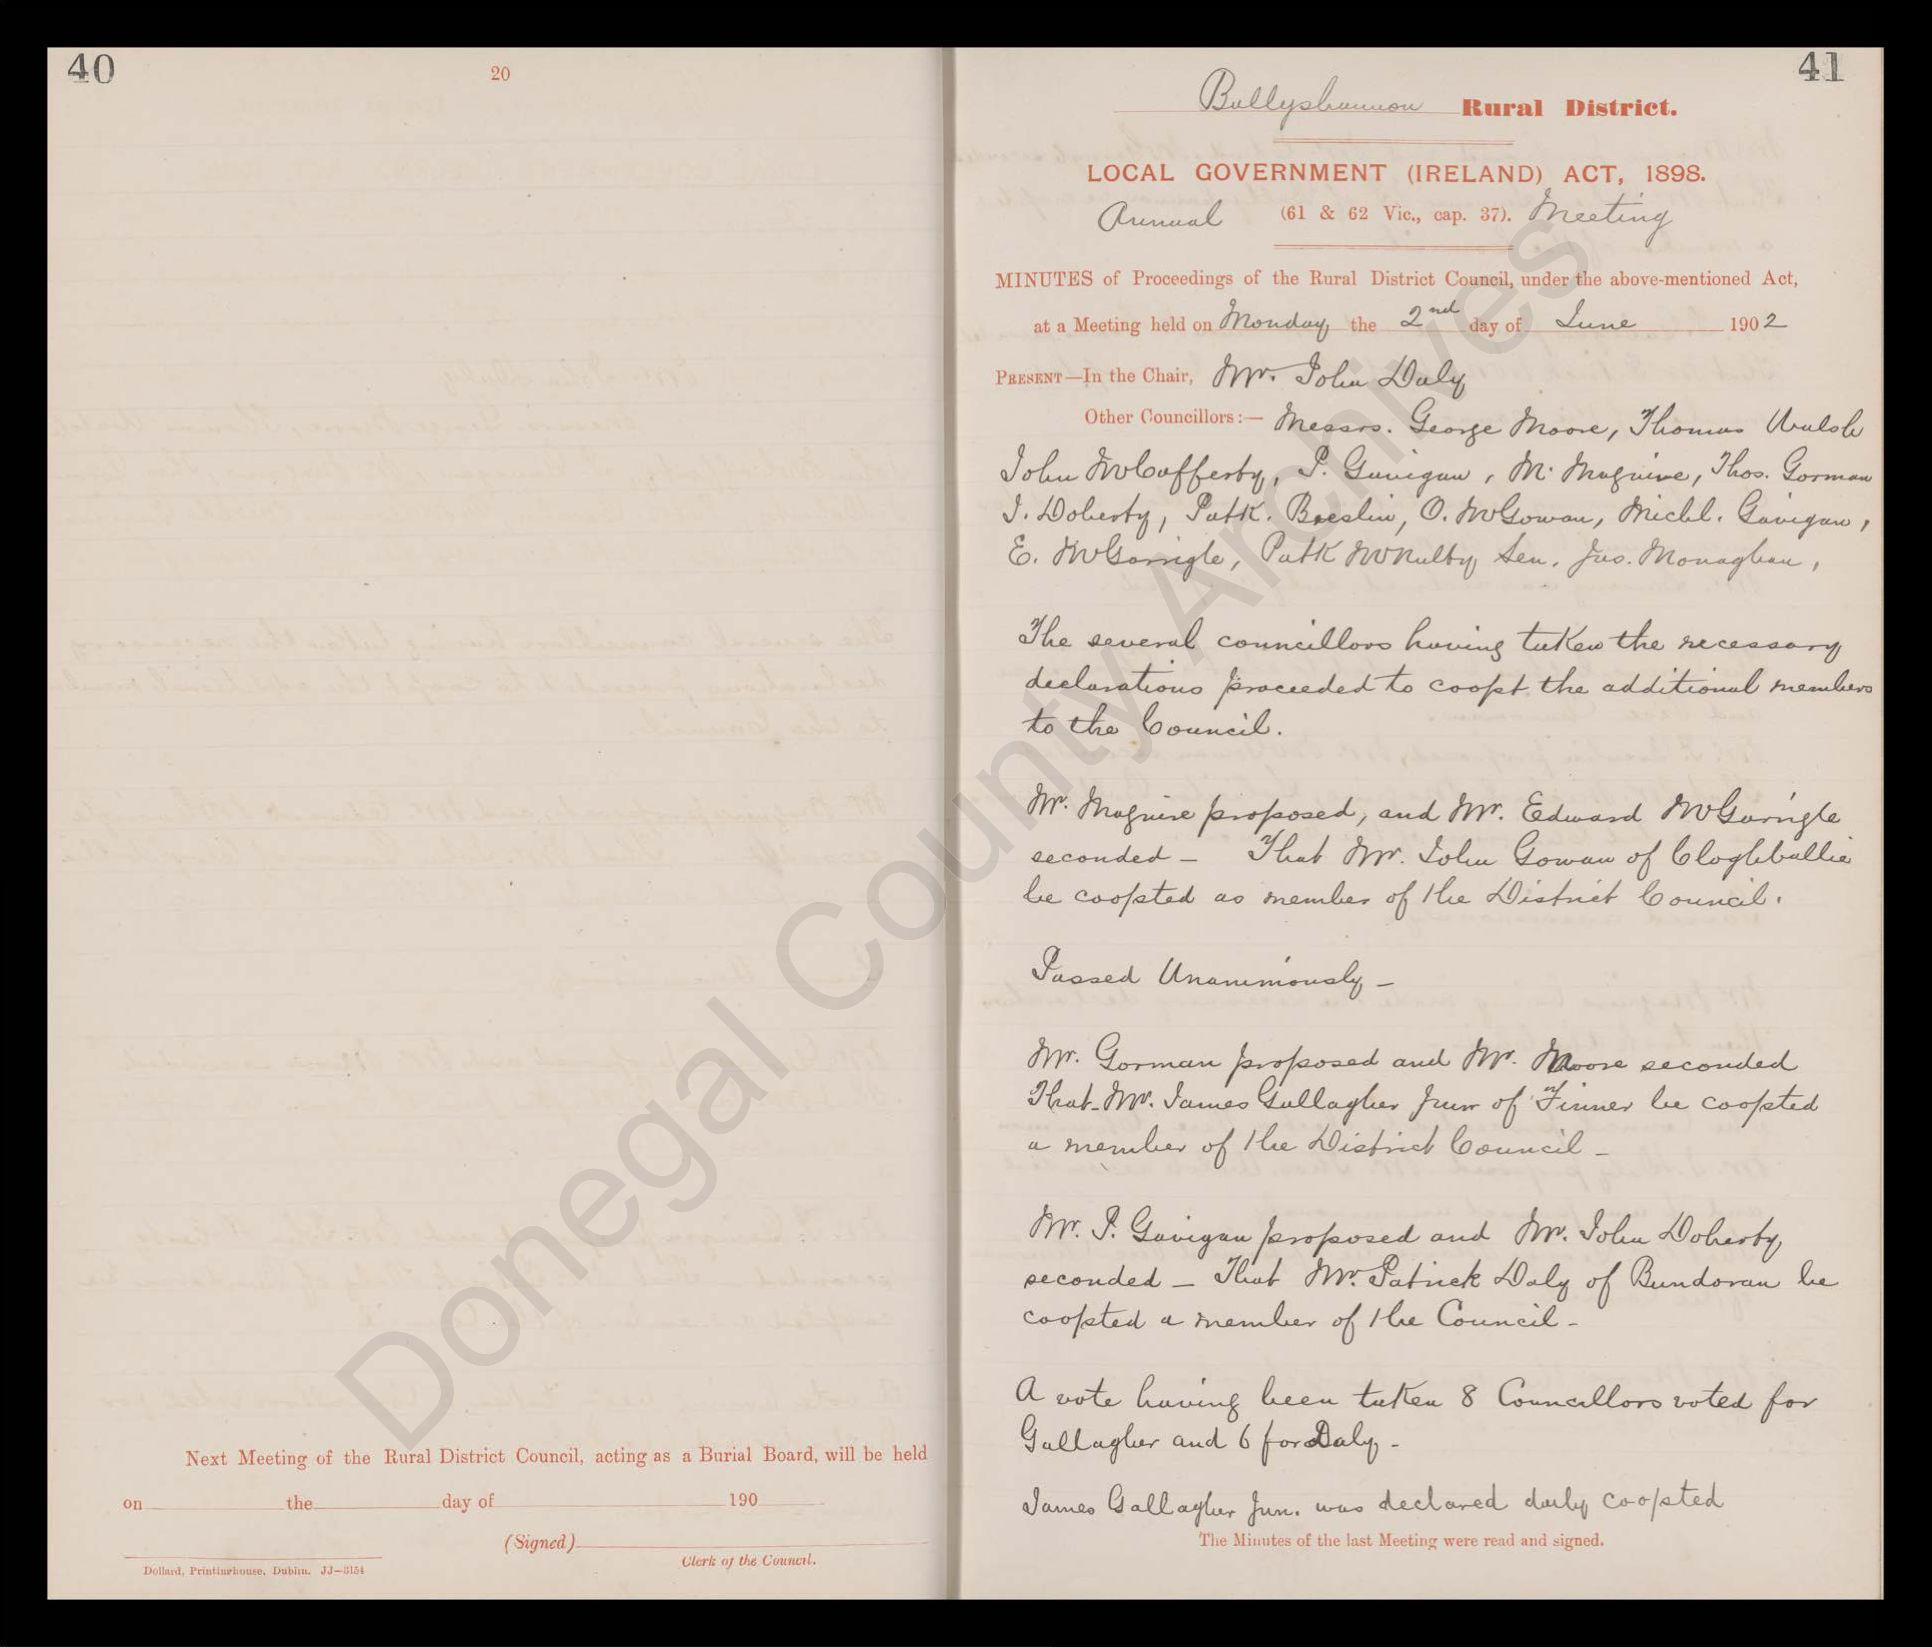 40
20
Next Meeting of the Rural District Council, acting as a Burial Board, will be held
on the day of 190
(Signed)
Clerk of the Council.
Dollard, Printinghouse, Dublin. JJ—3154
41
Ballyshannon Rural District.
LOCAL GOVERNMENT (IRELAND) ACT, 1898.
Annual (61 & 62 Vic., cap. 37). Meeting
MINUTES of Proceedings of the Rural District Council, under the above-mentioned Act,
at a Meeting held on Monday the 2nd day of June 1902
PRESENT—In the Chair, Mr. John Daly
Other Councillors:— Messrs. George Moore, Thomas Walsh
John McCafferty, P. Gavigan, M. Maguire, Thos. Gorman
J. Doherty, Patk. Breslin, O. McGowan, Michl. Gavigan,
E. McGarrigle, Patk McNulty Sen. Jas. Monaghan,
The several councillors having taken the necessary
declarations proceeded to coopt the additional members
to the Council.
Mr. Maguire proposed, and Mr. Edward McGarrigle
seconded – That Mr. John Gowan of Cloghbullie
be coopted as member of the District Council.
Passed Unanimously –
Mr. Gorman proposed and Mr. Moore seconded
That Mr. James Gallagher Junr of Finner be coopted
a member of the District Council –
Mr. P. Gavigan proposed and Mr. John Doherty
seconded – That Mr. Patrick Daly of Bundoran be
coopted a member of the Council –
A vote having been taken 8 Councillors voted for
Gallagher and 6 for Daly –
James Gallagher Jun. was declared duly coopted
The Minutes of the last Meeting were read and signed.
Donegal County Archives